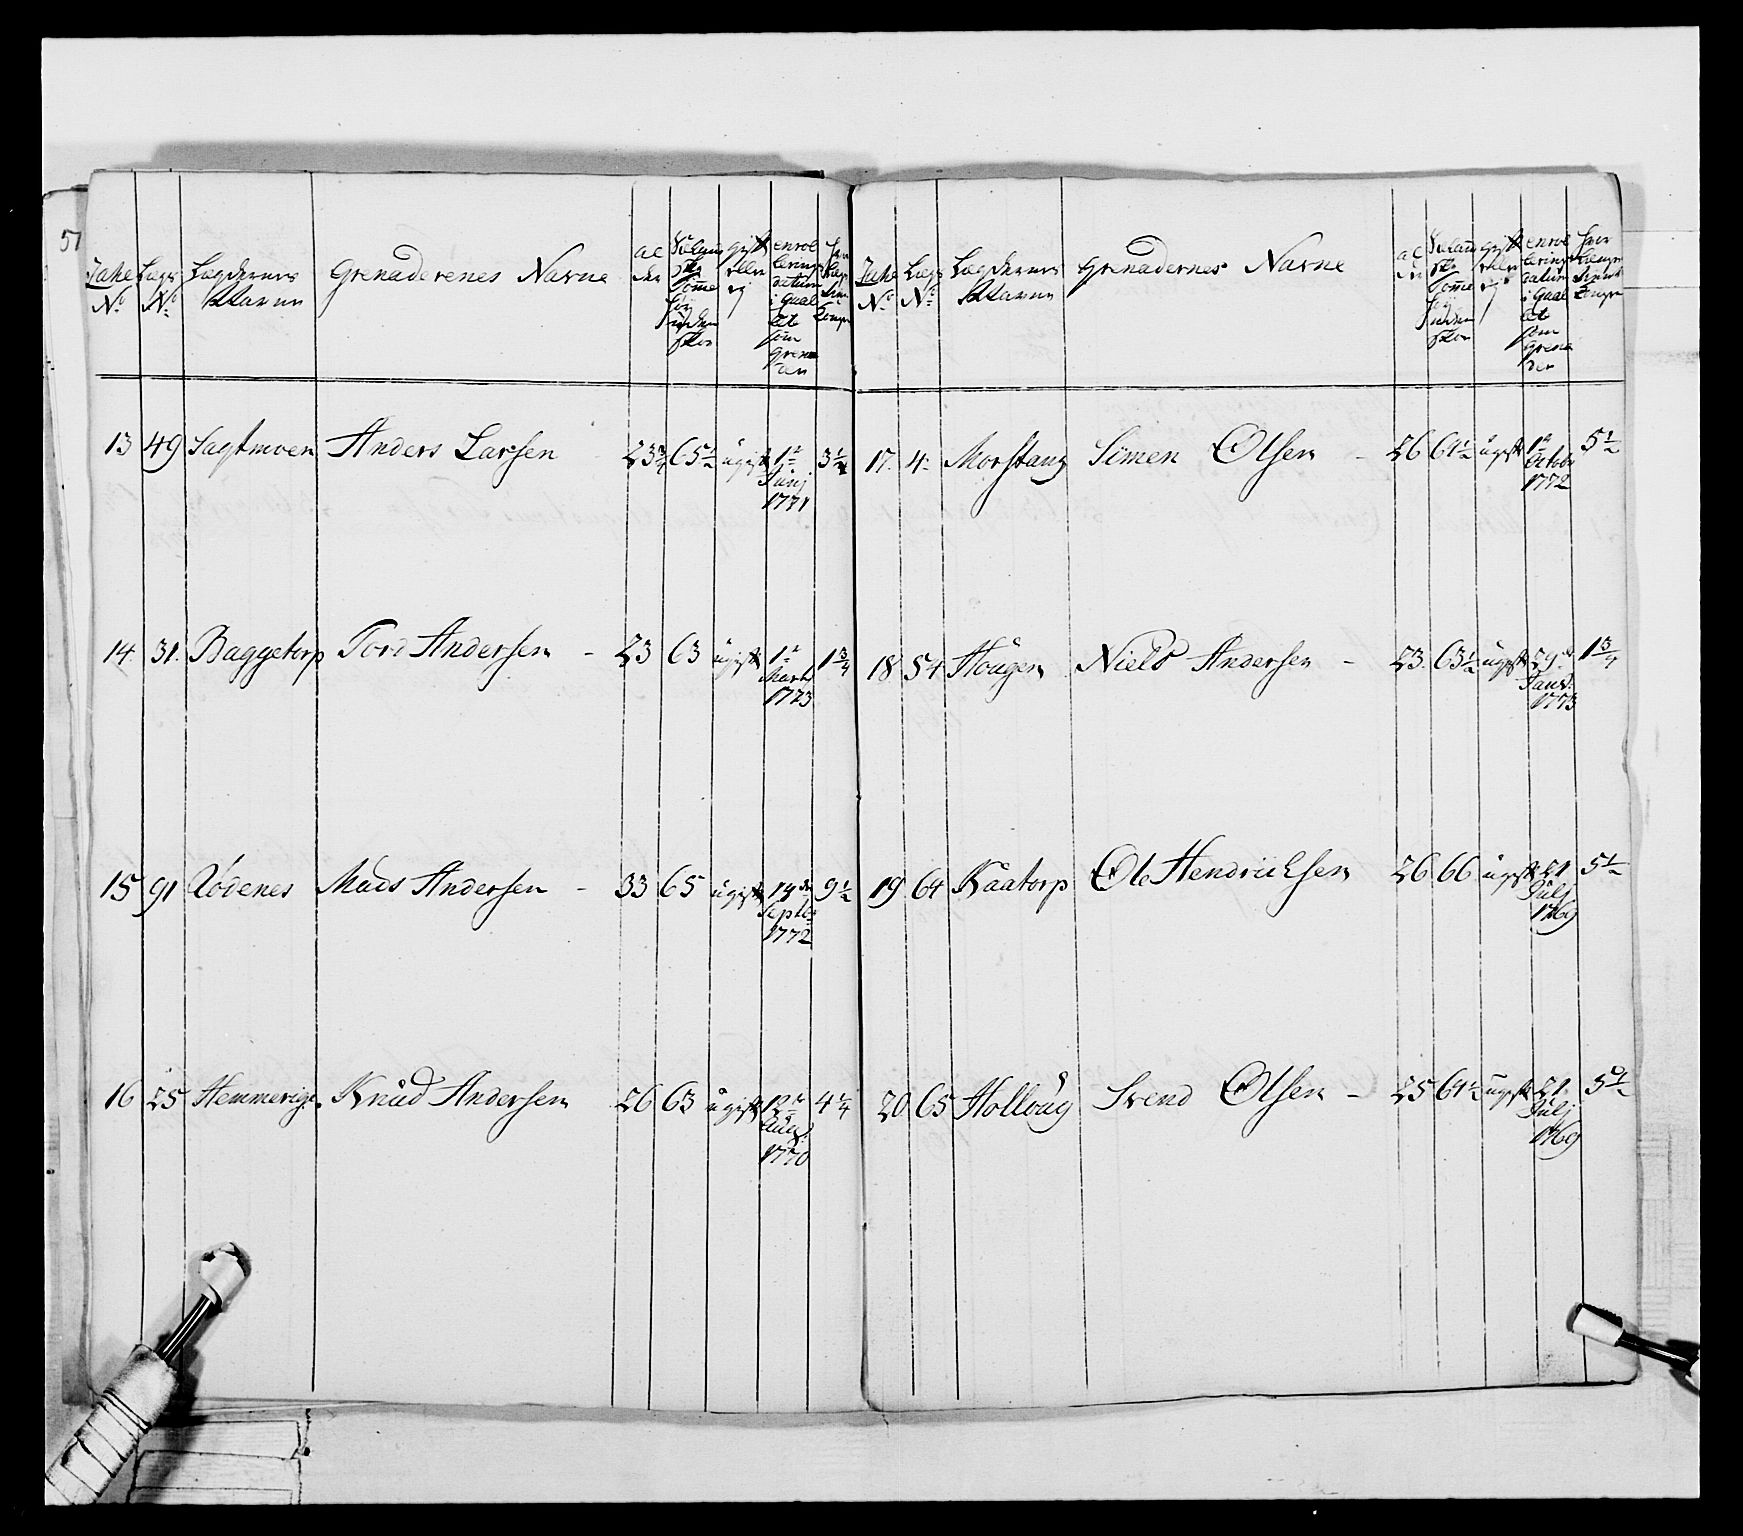 5
Læg No
Lægdernes Navne
Grenaderenes Navne
al der
gift eller ej
enrollerings datum i qualitet som grenader
13 49 Sagtmoen Anders Larsen 23 3/4 65 1/2 ugift 1te Junj 1771 3 1/4
14. 31. Baggetorp Tord Andersen - 23 63 ugift 1te Marts 1773 1 3/4
15 91 Lödenes Mads Andersen - 33 65 ugift 14de Septbr 1772 9 1/2
16 25 Hemmerige. Knud Andersen 26 63 ugift 12te 1770 4 1/4
No Læg No
Lægdernes Navne
Grenadernes Navne
al der
gift eller ej
enrollerings datum i qualitet som grenader
17. 4. Morstang Simen Olsen - 26 64 1/2 ugift 1te Octobr 1772 5 1/2
18 54 Hougen Niels Andersen - 23. 63 1/2 ugift 29de Janr: 1773 1 3/4
19 64 Kaatorp Ole Hendrichsen 26 66 ugift 21 Julj 1769 5 1/2
20 65 Holloug Svend Olsen - 25 64 1/2 ugift 21. Julj 1769 5 1/2